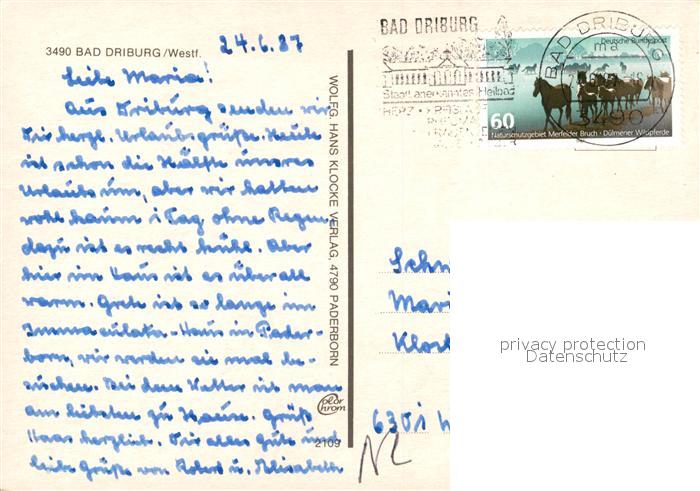 3490 BAD DRIBURG/Westf.
24.6.87
Liebe Maria!
Aus Driburg senden wir
Dir herzl. Urlaubsgrüße. Heute
ist schon die Hälfte unseres
Urlaubs um, aber wir hatten
wohl kaum 1 Tag ohne Regen
dazu ist es recht kühl. Aber
hier im Haus ist es überall
warm. Grete ist so lange im
Immaculata-Haus in Pader-
born, wir werden sie mal be-
suchen. Bei dem Wetter ist man
am liebsten zu Hause. Grüß
Haas herzlich. Dir alles gute und
liebe Grüße von Robert u. Elisabeth
WOLFG. HANS KLOCKE VERLAG, 4790 PADERBORN
Color
chrom
2109
BAD DRIBURG
Staatl anerkanntes Heilbad
HERZ
BAD DRIBURG
ma
3490
Deutsche Bundespost
60
Naturschutzgebiet Merfelder Bruch · Dülmener Wildpferde
Sch
Mari
Klost
6301
NL
privacy protection
Datenschutz